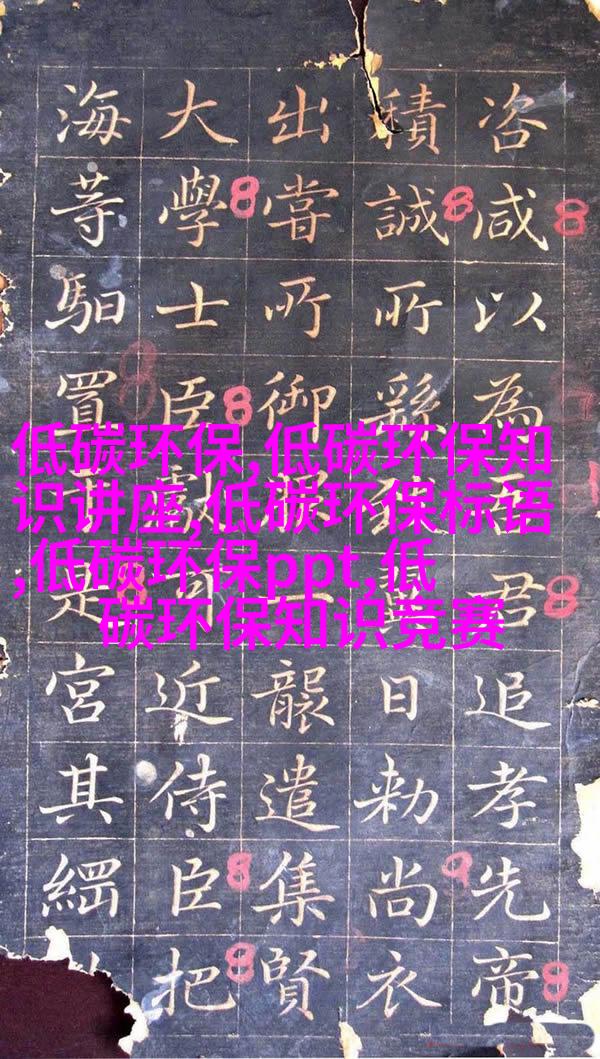 低碳环保,低碳环保知
识讲座,低碳环保标语
,低碳环保ppt,低
碳环保知识竞赛
咨咸以為吾君追孝先帝
積誠所繇致日勅尚衣
出嘗所御服一襲遣集賢
大學士臣獻可近侍臣把
海等馹置是宮其繝